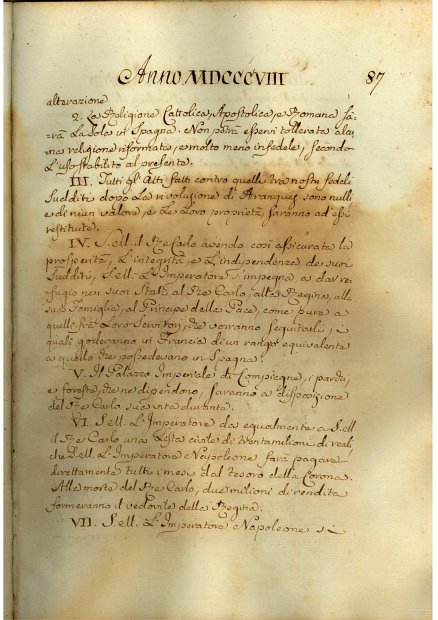 Anno MDCCCVIII 87
alterazione
2. La Religione Cattolica, Apostolica, e Romana sa-
=rà la sola in Spagna. Non potrà esservi tollerata alcu
na religione riformata, e molto meno infedele, secondo
l'uso stabilito al presente.
III. Tutti gl'Atti fatti contro quelli tra nostri fedeli
Sudditi dopo la rivoluzione di Aranquez sono nulli
e di niun valore, e le loro proprietà saranno ad essi
restituite.
IV. S. M. il Re Carlo avendo così assicurata la
prosperità, l'integrità e l'independenza de suoi
Sudditi, S. M. l'Imperatore s'impegna a dar re-
fugio nei suoi Stati al Re Carlo, alla Regina, alla
sua Famiglia, al Principe della Pace, come pure a
quelli fra i Loro Servitori, che vorranno seguitarli, i
quali goderanno in Francia di un rango equivalente
a quello che possedevano in Spagna.
V. Il Palazzo Imperiale di Compiegne, i parchi,
e foreste, che ne dipendono, saranno a disposizione
del Re Carlo sua vita durante.
VI. S. M. l'Imperatore da egualmente a S. M.
il Re Carlo una Lista civile di trenta milioni di reali,
che S. M. l'Imperatore Napoleone farà pagare
direttamente tutti i mesi dal tesoro della Corona.
Alla morte del Re Carlo, due milioni di rendita
formeranno il vedovile della Regina.
VII. S. M. l'Imperatore Napoleone si